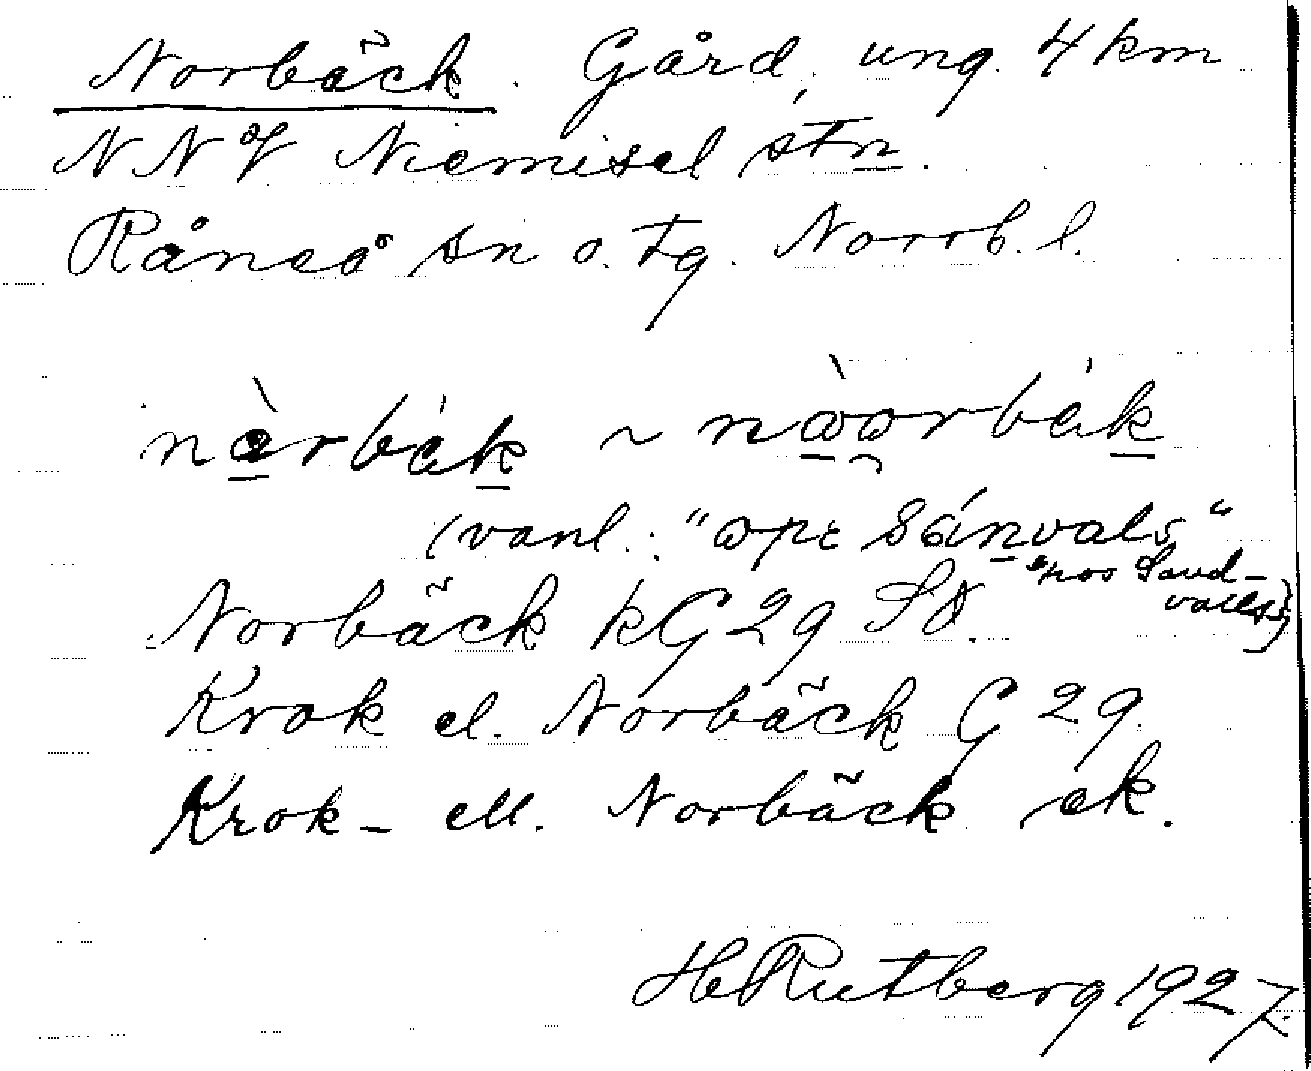 Norbäck. Gård, ung. 4 km
NNV Niemisel stn.
Råneå sn o. tg. Norrb. l.
nàrbák ~ nòorbák
(vanl.: "opε sánvals"
"hos Sand-
valls")
Norbäck kG29 SO.
Krok el. Norbäck G29.
Krok- ell. Norbäck ek.
HRutberg 1927.